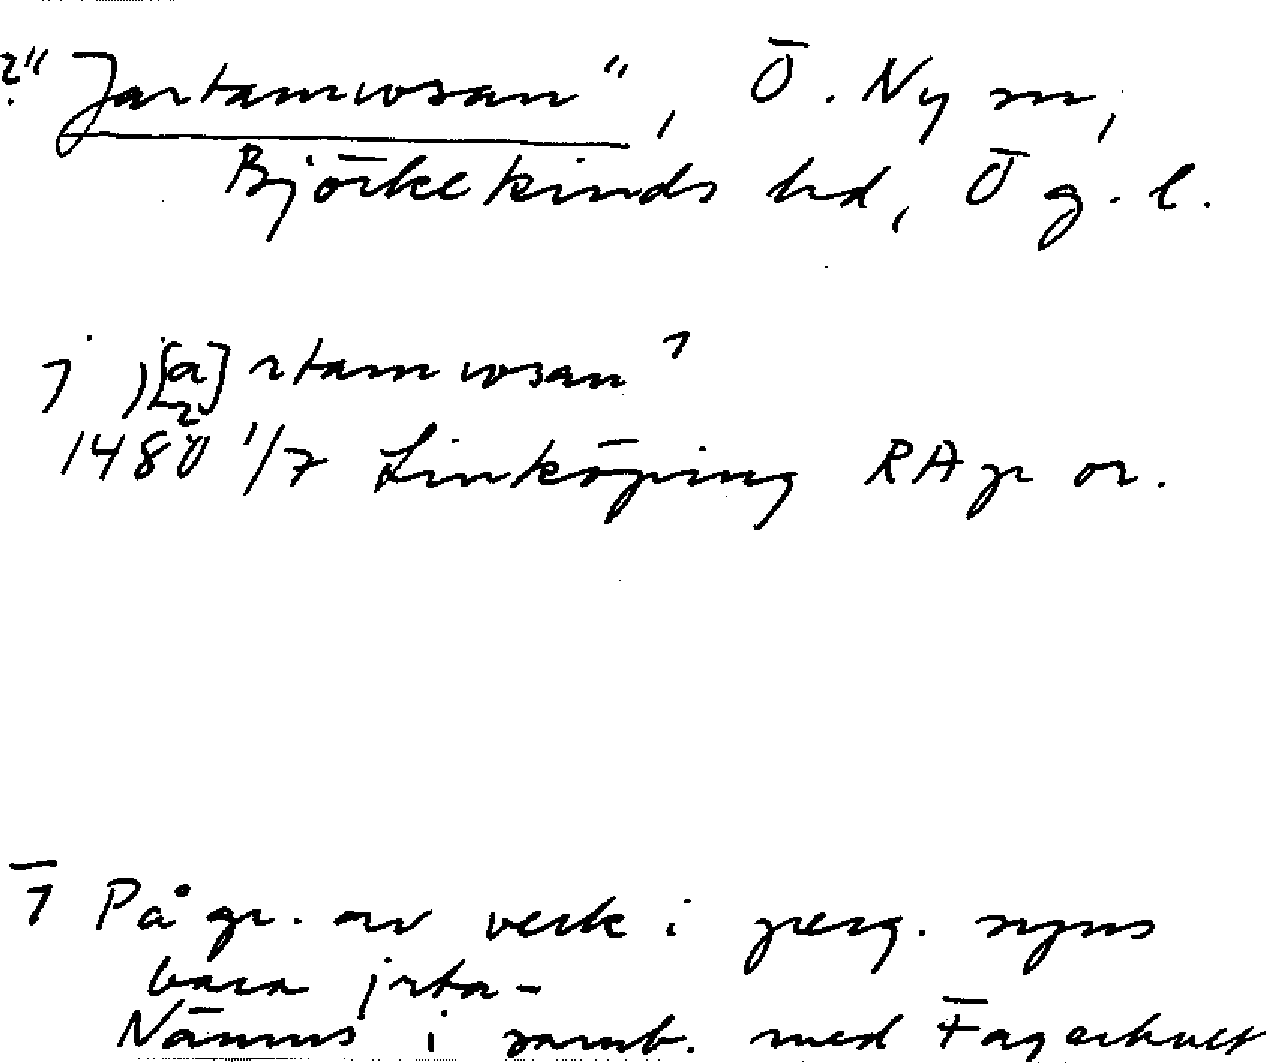 ?"Jartamwsan", Ö. Ny sn,
Björkekinds hd, Ög. l.
j j[a]rtamwsan 1
1480 1/7 Linköping RAp or.
1 På gr. av veck i perg. syns
bara jrta-
Nämns i samb. med Fagerhult